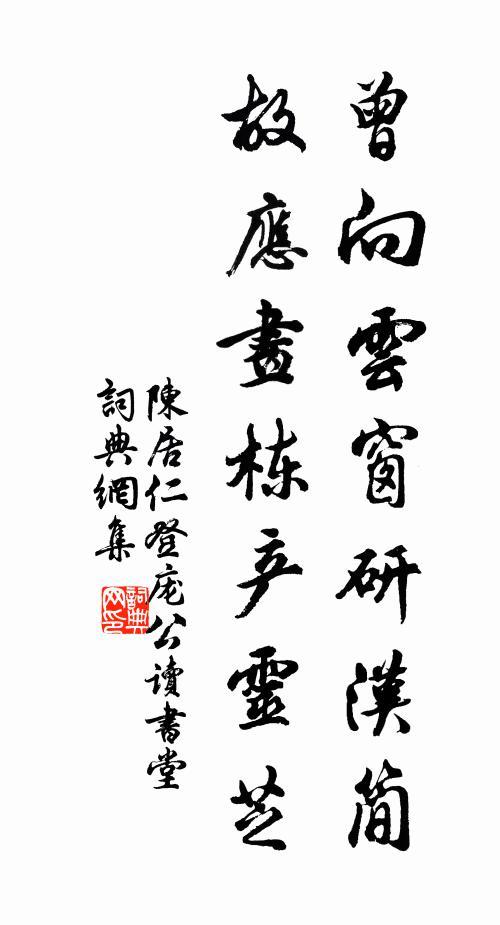 曾向雲窗研漢簡
故應畫栋产靈芝
陳居仁登庞公讀書堂
詞典網集
詞典网印